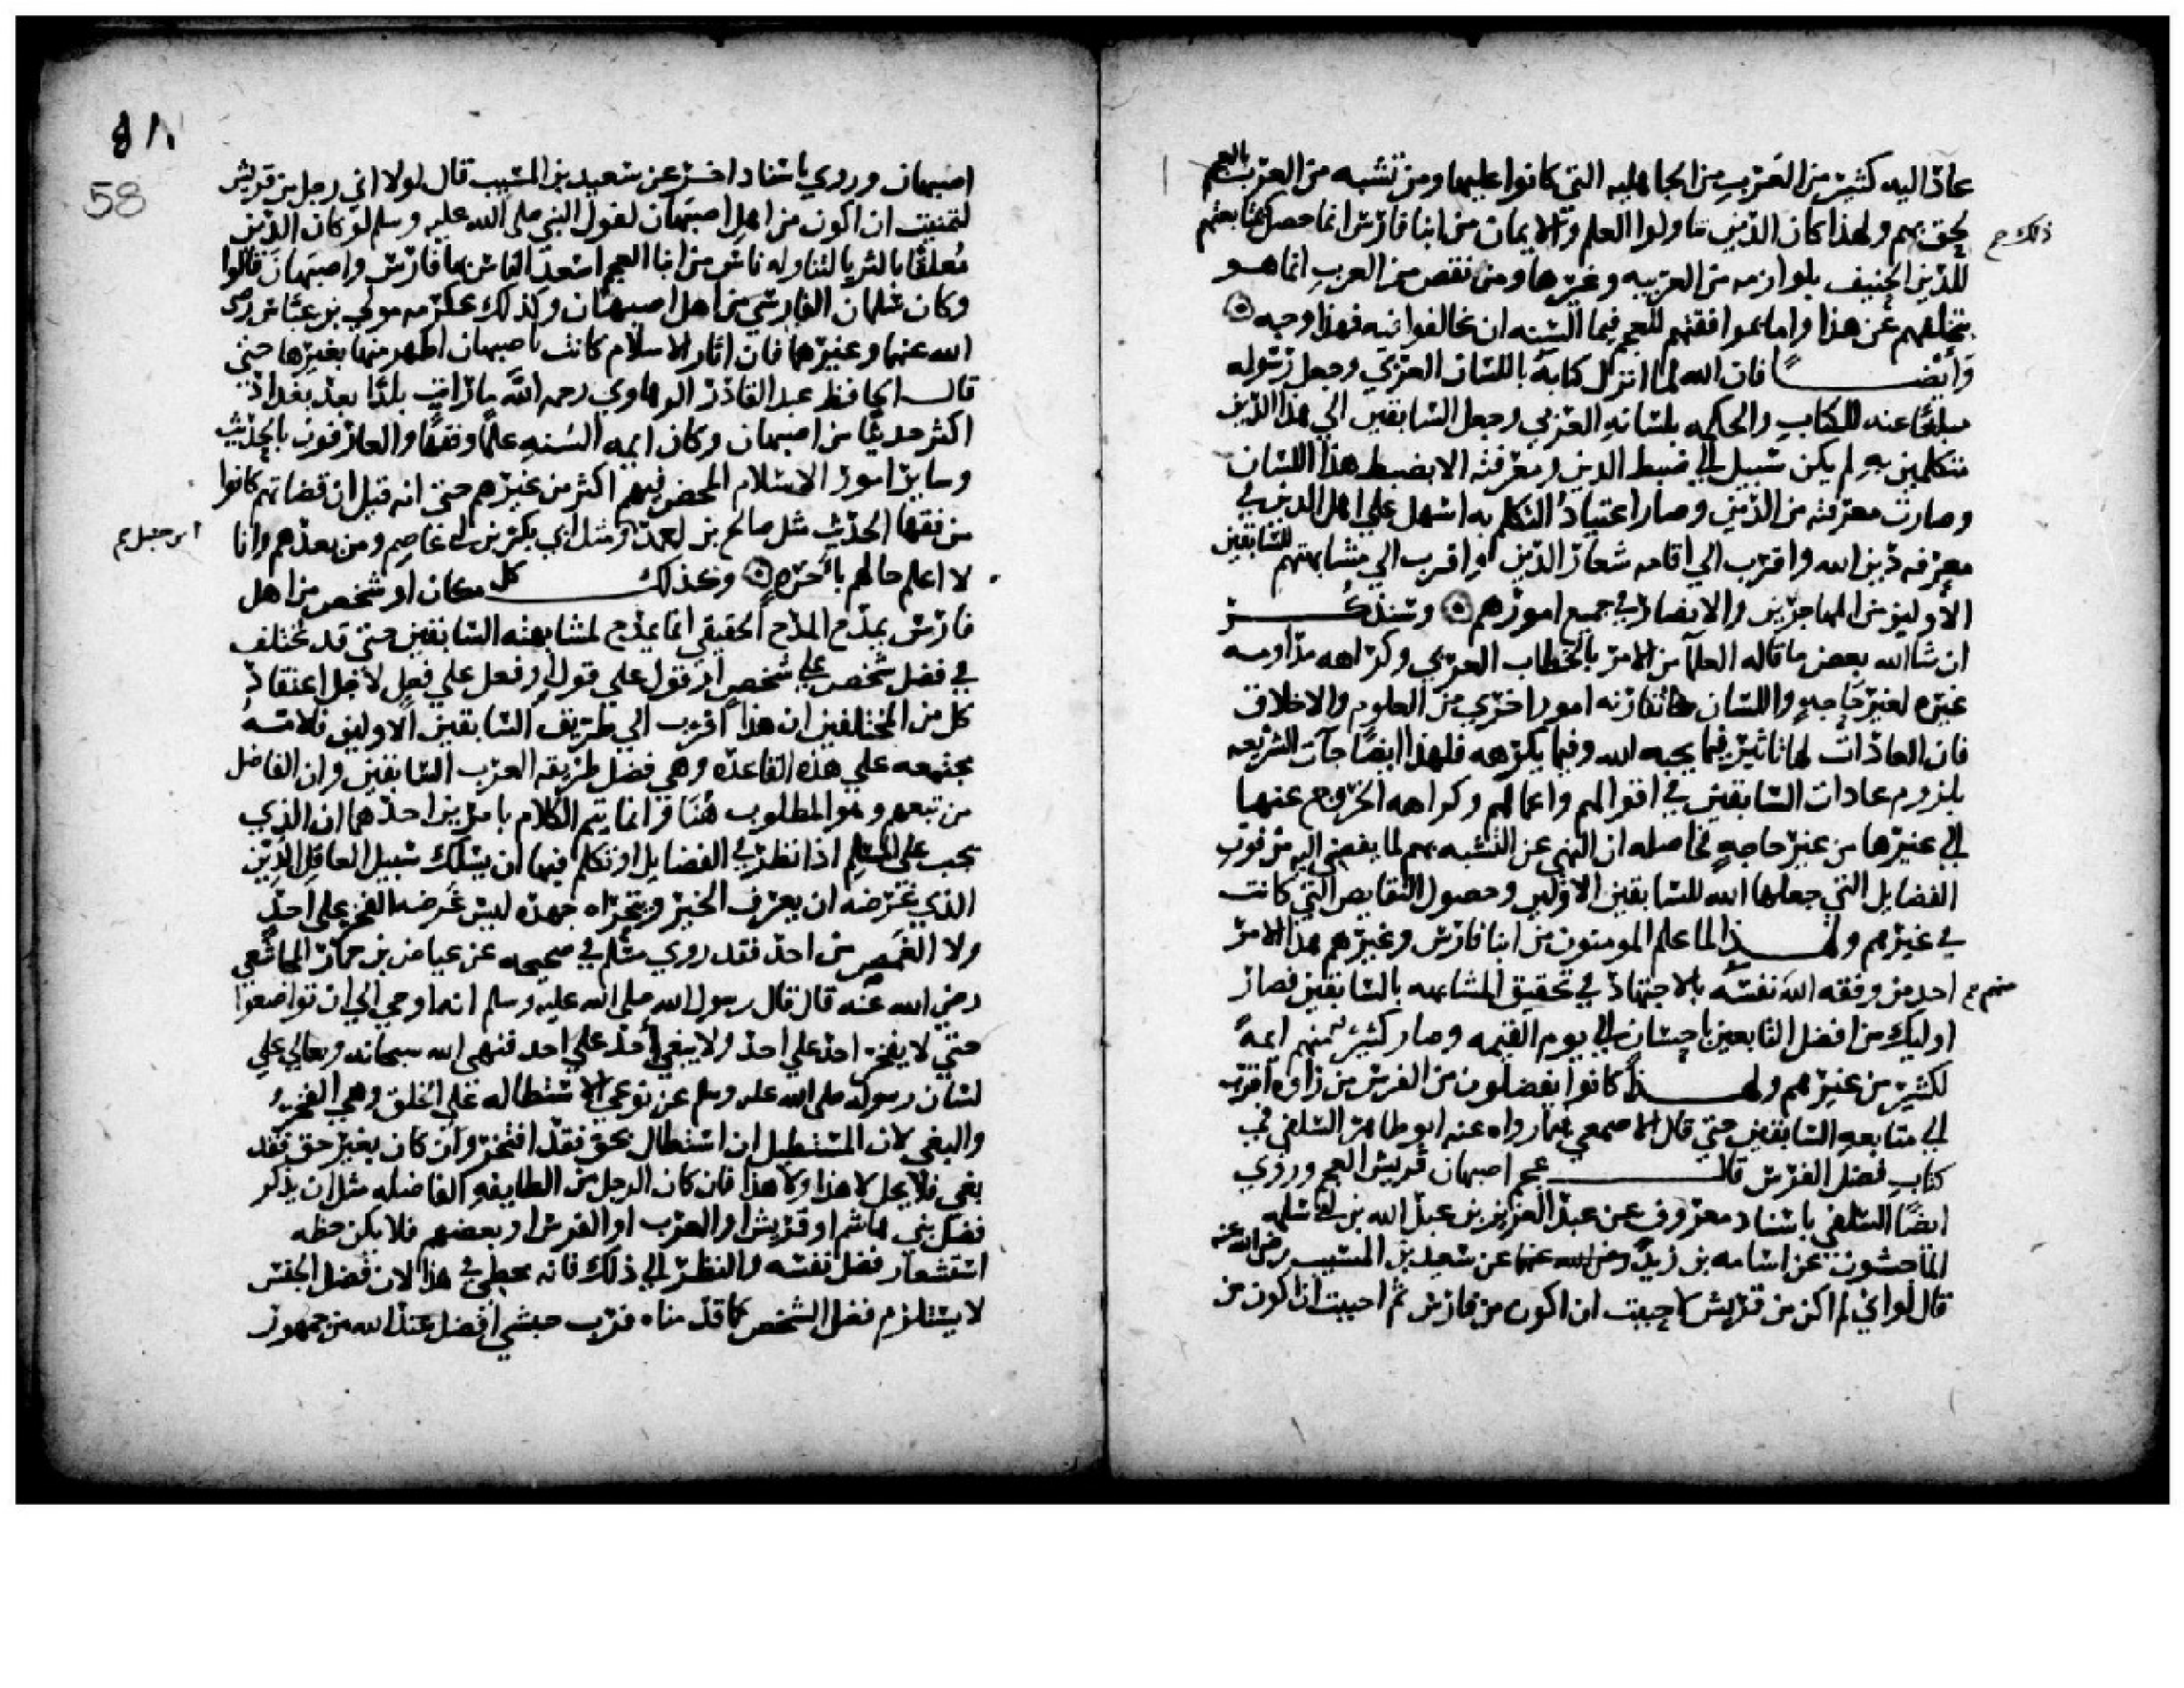 عاد اليه كثير من العرب من الجاهليه التي كانوا عليها ومن تشبه من العرب بالعجم
لحق بهم ولهذا كان الذين تناولوا العلم والايمان من ابنا فارس انما حصل بمتابعتهم
ذلك صح
للدين الحنيف بلوازمه من العربيه وغيرها ومن نقص من العرب انما هو
بتخلفهم عن هذا واما بموافقتهم للعجم فيما السنه ان يخالفوا فيه فهذا وجه
وأيضًا فان الله لما انزل كتابه باللسان العربي وجعل رسوله
مبلغًا عنه للكتاب والحكمه بلسانه العربي وجعل السابقين الي هذا الدين
متكلمين به لم يكن سبيل الي ضبط الدين ومعرفته الا بضبط هذا اللسان
وصارت معرفته من الدين وصار اعتياد التكلم به اسهل علي اهل الدين في
معرفه دين الله واقرب الي اقامه شعار الدين او اقرب الي مشابهتهم للسابقين
الأولين من المهاجرين والانصار في جميع امورهم وسنذكر
ان شا الله بعض ما قاله العلمآ من الامر بالخطاب العربي وكراهه مداومه
غيره لغير حاجهٍ واللسان تقارنه امور اخري من العلوم والاخلاق
فان العادات لها تاثير فيما يحبه الله وفيما يكرهه فلهذا ايضًا جآت الشريعه
بلزوم عادات السابقين في اقوالهم واعمالهم وكراهه الخروج عنها
الي غيرها من غير حاجهٍ فحاصله ان النهي عن التشبه بهم لما يفضي اليه من فوت
الفضايل التي جعلها الله للسابقين الاولين وحصول النقايص التي كانت
في غيرهم ولهذا لما علم المومنون من ابنا فارس وغيرهم هذا الامر
منهم صح
احد من وفقه الله نفسَه بالاجتهاد في تحقيق المشابهه بالسابقين فصار
اوليك من افضل التابعين باحسان الي يوم القيمه وصار كثير منهم ايمهً
لكثير من غيرهم ولهذا كانوا يفضلون من الفرس من راوه اقرب
الي متابعه السابقين حتي قال الاصمعي فيما رواه عنه ابو طاهر السلفي في
كتاب فضل الفرس قال عجم اصبهان قريش العجم وروي
ايضًا السلفي باسناد معروف عن عبد العزيز بن عبد الله بن ابي سلمه
الماجشون عن اسامه بن زيد رضي الله عنهما عن سعيد بن المسيب رضي الله عنه
قال لو اني لم اكن من قريش لاحببت ان اكون من فارس ثم احببت ان اكون من
58
اصبهان وروي باسناد اخر عن سعيد بن المسيب قال لولا اني رجل من قريش
لتمنيت ان اكون من اهل اصبهان لقول النبي صلي الله عليه وسلم لو كان الدين
مُعلقًا بالثريا لتناوله ناس من ابنا العجم اسعد الناس بها فارس واصبهان قالوا
وكان سلمان الفارسي من اهل اصبهان وكذلك عكرمه مولي بن عباس رضي
الله عنهما وغيرهما فان اثار الاسلام كانت باصبهان اظهر منها بغيرها حتي
قال الحافظ عبد القادر الرهاوي رحمه الله ما رايت بلدًا بعد بغداذ
اكثر حديثًا من اصبهان وكان ايمه السنه علمًا وفقهًا والعارفون بالحديث
وساير امور الاسلام المحض فيهم اكثر من غيرهم حتي انه قيل ان قضاتهم كانوا
من فقها الحديث مثل صالح بن احمد ومثل ابي بكر بن ابي عاصم ومن بعدهم وانا
ابن حنبل صح
لا اعلم حالهم بأخَرهٍ وكذلك كل مكان او شخص من اهل
فارس يمدح المدح الحقيقي انما يمدح لمشابهته السابقين حتي قد تختلف
في فضل شخص علي شخص او قول علي قول او فعل علي فعل لاجل اعتقاد
كل من المختلفين ان هذا اقرب الي طريق السابقين الاولين فلامه
مجتمعه علي هذه القاعده وهي فضل طريقه العرب السابقين وان الفاضل
من تبعهم وهو المطلوب هُنَا وانما يتم الكلام بامرين احدهما ان الذي
يجب علي المسلم اذا نظر في الفضايل او تكلم فيها ان يسلك سبيل العاقل الدِّين
الذي غَرَضه ان يعرف الخير ويتحراه جهده ليس غَرضه الفخر علي احدٍ
ولا الغَمص من احد فقد روي مسلم في صحيحه عن عياض بن حمار المجاشعي
رضي الله عنه قال قال رسول الله صلي الله عليه وسلم انه اوحي الي ان تواضعوا
حتي لا يفخر احد علي احد ولا يبغي أحد علي احد فنهي الله سبحانه وتعالي علي
لسان رسوله صلي الله عليه وسلم عن نوعي الاستطاله علي الخلق وهي الفخر
والبغي لان المستطيل ان استطال بحق فقد افتخر وان كان بغير حق فقد
بغي فلا يحل لا هذا ولا هذا فان كان الرجل من الطايفه الفاضله مثل ان يذكر
فضل بني هاشم او قريش او العرب او الفرس او بعضهم فلا يكن حظه
استشعار فضل نفسه والنظر الي ذلك فانه مخطي في هذا لان فضل الجنس
لا يستلزم فضل الشخص كما قدمناه فرب حبشي افضل عند الله من جمهور